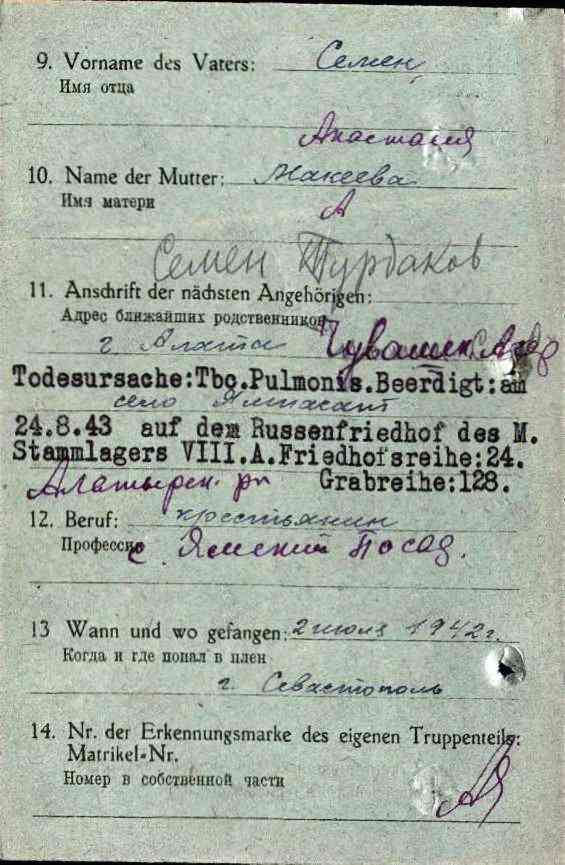 9. Vorname des Vaters: Семен
Имя отца
Анастасия
10. Name der Mutter: Макеева
Имя матери
А
Семен Турдаков
11. Anschrift der nächsten Angehörigen:
Адрес ближайших родственников
г. Чувашск.
Todesursache:Tbc.Pulmonis.Beerdigt:am
село
24.8.43 auf dem Russenfriedhof des M.
Stammlagers VIII.A.Friedhofsreihe:24.
Алатырск. рн Grabreihe:128.
12. Beruf: крестьянин
Профессия с Ямский Посад.
13 Wann und wo gefangen: 2 июля 1942г.
Когда и где попал в плен
г. Севастополь
14. Nr. der Erkennungsmarke des eigenen Truppenteils:
Matrikel-Nr.
Номер в собственной части